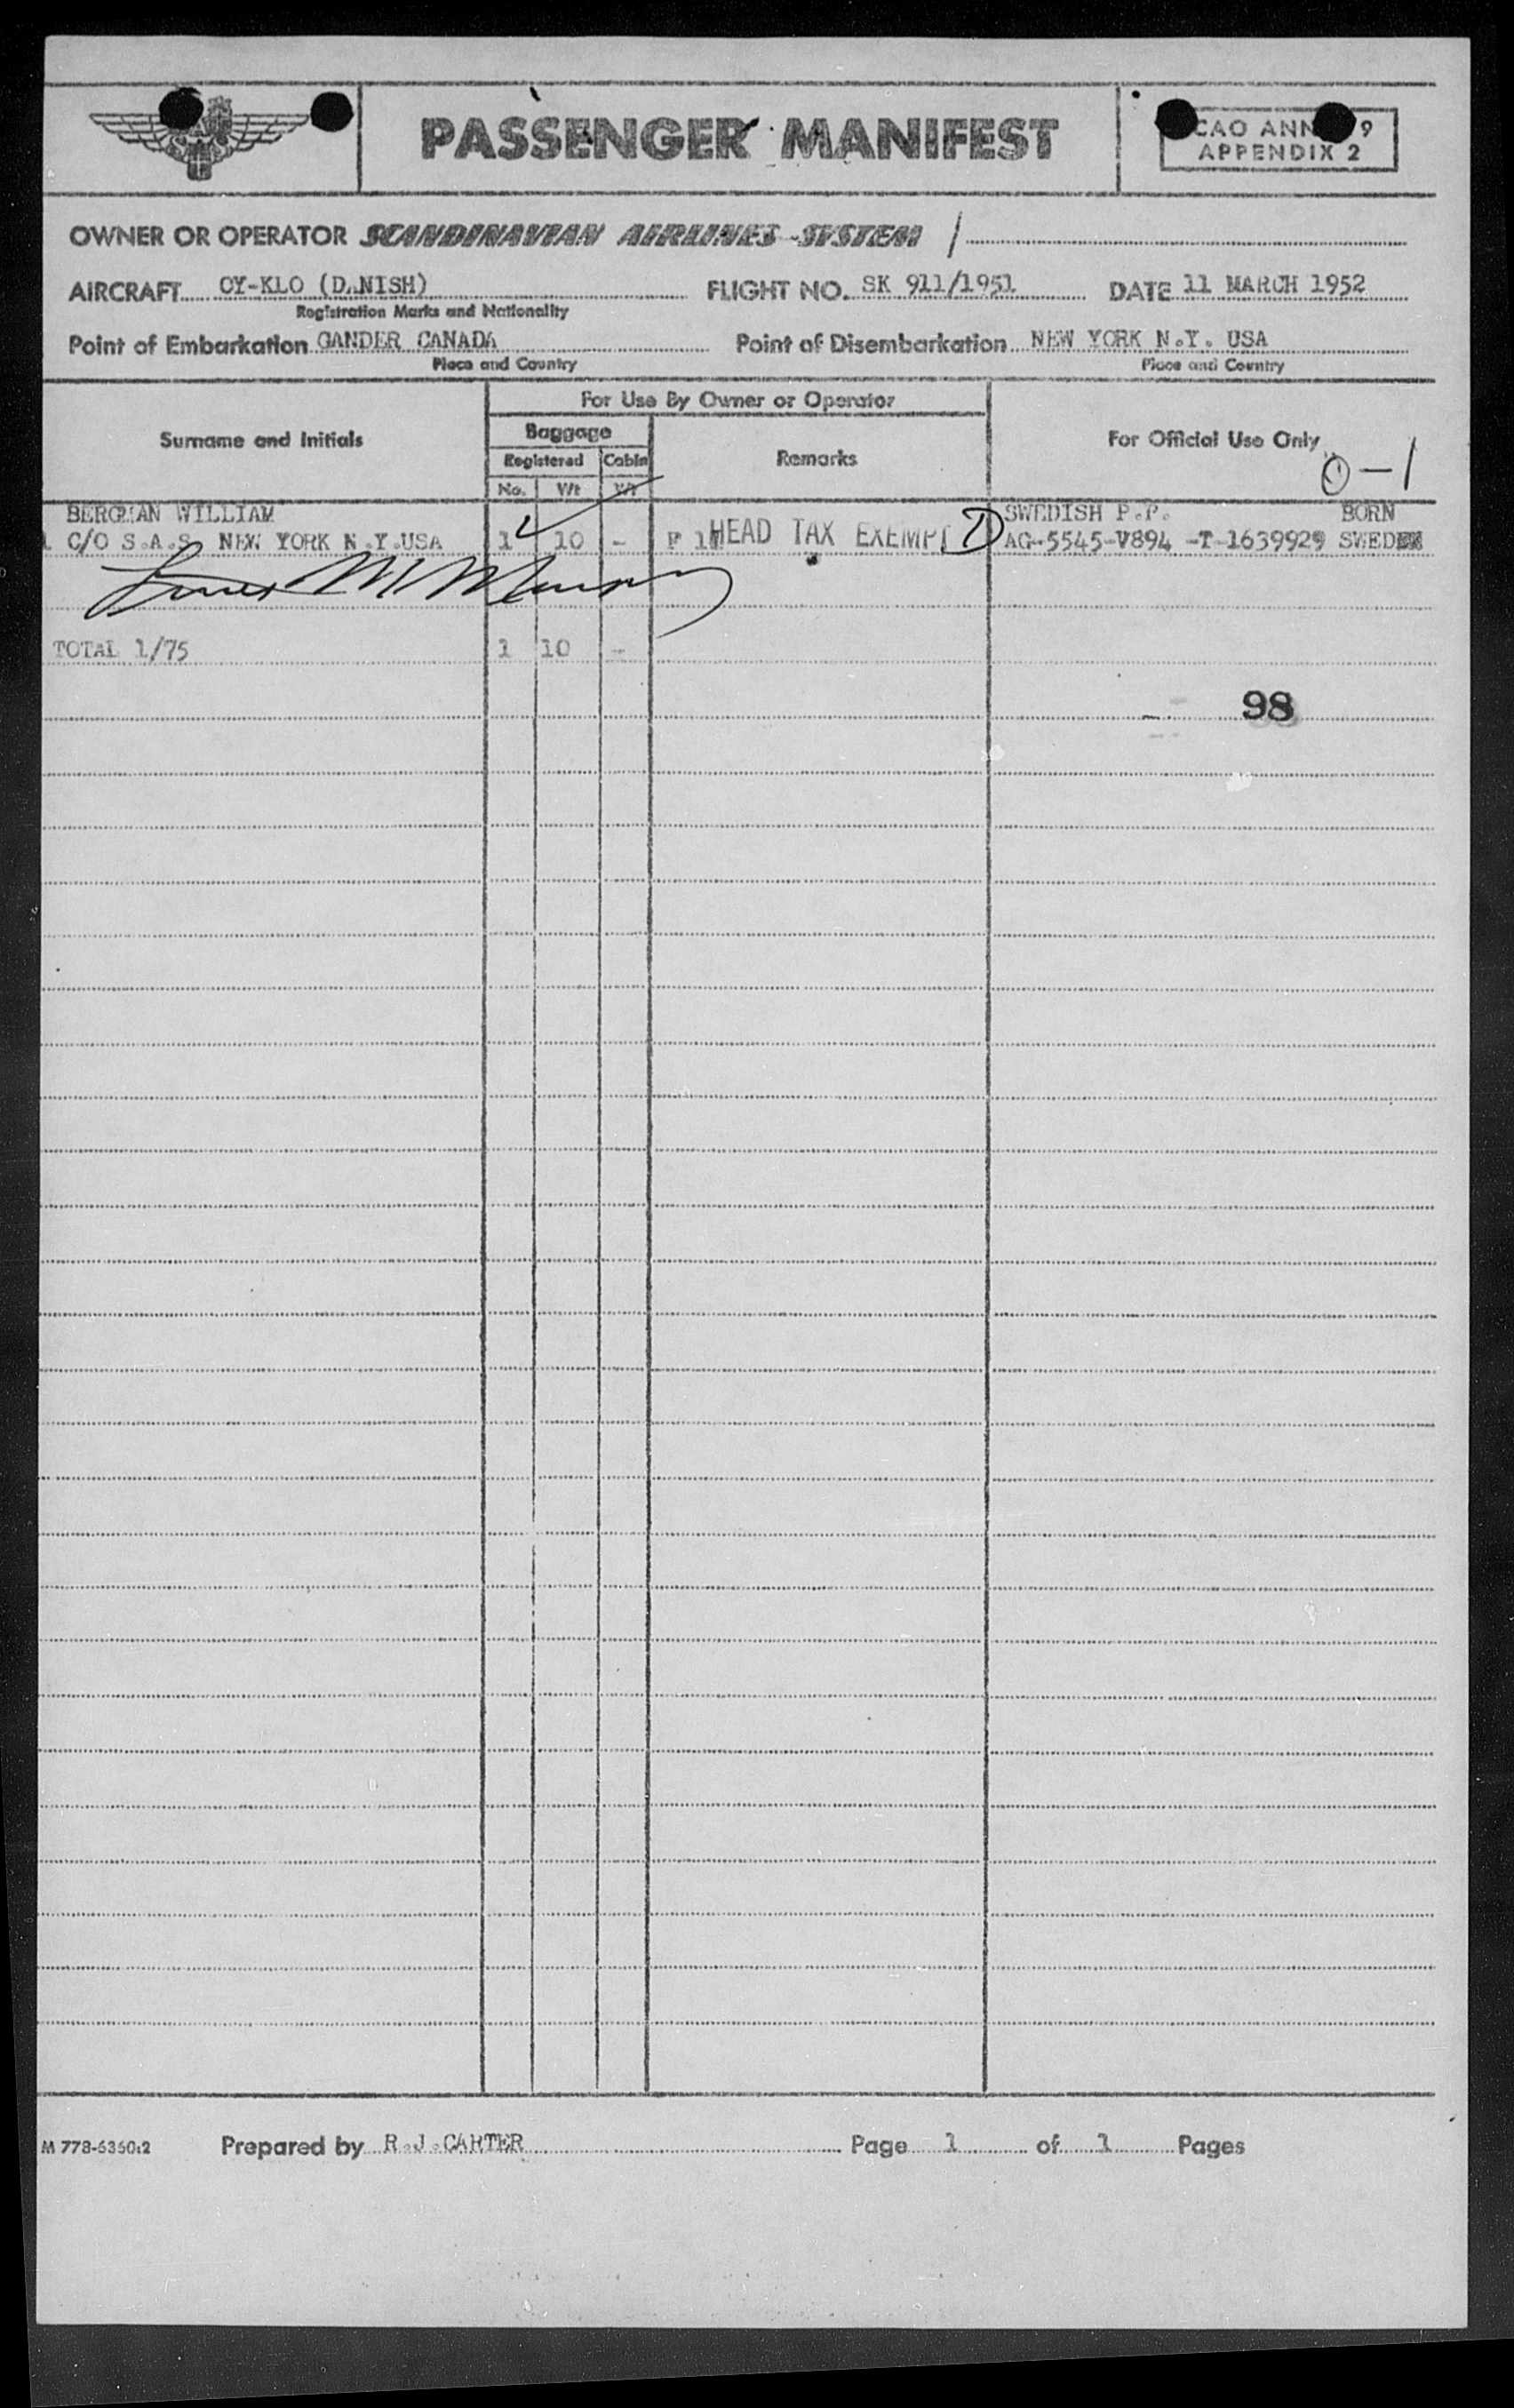 PASSENGER MANIFEST
CAO ANN 9
APPENDIX 2
OWNER OR OPERATOR SCANDINAVIAN AIRLINES SYSTEM /
AIRCRAFT OY-KLO (DANISH) FLIGHT NO. SK 911/1951 DATE 11 MARCH 1952
Registration Marks and Nationality
Point of Embarkation GANDER CANADA Point of Disembarkation NEW YORK N.Y. USA
Place and Country Place and Country
For Use By Owner or Operator
Surname and Initials Baggage Remarks For Official Use Only
Registered Cabin
No. Wt Wt
0-1
BERGMAN WILLIAM SWEDISH P.P. BORN
1 C/O S.A.S. NEW YORK N.Y.USA 1 10 - F 1 HEAD TAX EXEMPT AG-5545-V894 -T-1639929 SWEDEN
TOTAL 1/75 1 10 -
98
M 778-6360:2 Prepared by R.J.CARTER Page 1 of 1 Pages